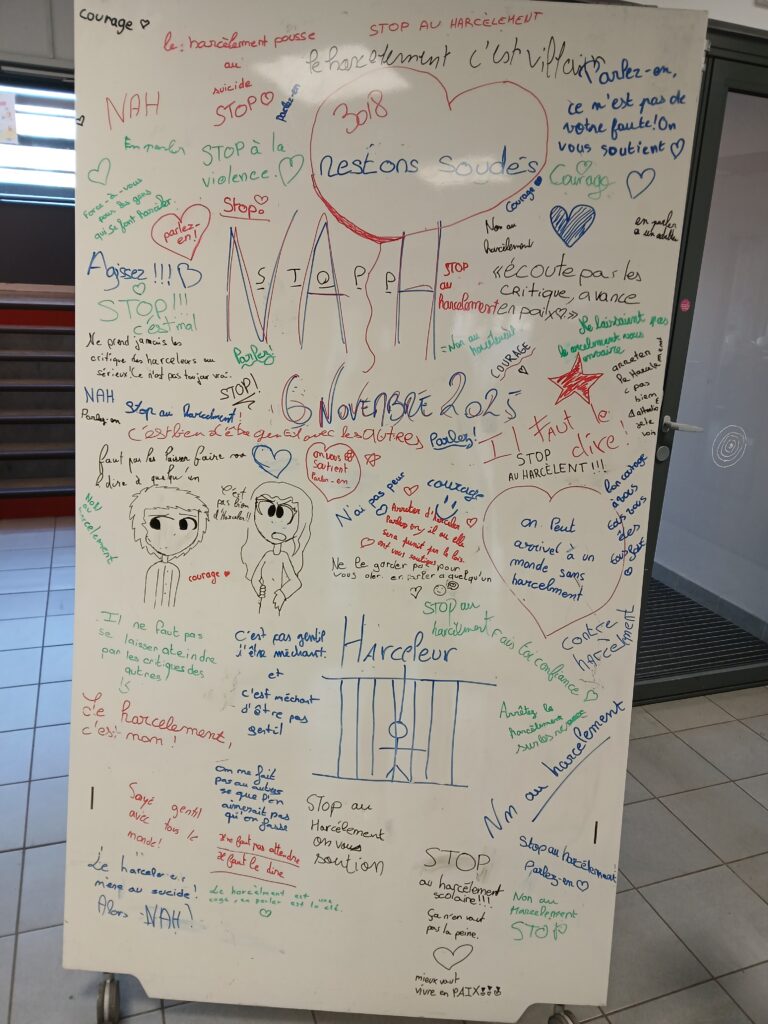 courage ♥
STOP AU HARCÈLEMENT
le harcèlement pousse
au
suicide
STOP ♡
Parlez-en
le harcelement c'est villain
Parlez-en,
ce n'est pas de
votre faute! On
vous soutient ♡
NAH
3018
Restons soudés
En parler
STOP à la
violence.
Courage
Courage
Force-à-vous
pour les gens
qui se font harceler.
parlez-
en!
Stop!
Non au
harcèlement
en parler
a un adulte
Agissez!!!
NAH
STOPP
STOP
au
harcelement
«écoute pas les
critique, avance
en paix♡»
STOP!!!
c'est mal
= Non au
harcèlement
COURAGE
Ne prend jamais les
critique des harceleurs au
sérieux! Ce n'est pas toujour vrai.
Parlez!
STOP!
arreter
le Harcelement
c pas
bien
NAH
Parlez-en
Stop au harcelment!
6 NOVEMBRE 2025
C'est bien d'être gentil avec les autres
Parlez!
Il Faut le
dire!
STOP
AU HARCÈLENT!!!
faut pas les laisser faire
à dire à quelqu'un
on vous
soutient
Parler-en
Non
au
harcelement
C'est
pas bien
d'Harceler!!
courage ♥
N'ai pas peur
courage
Arreter d'harceler
Parlez en, il ou elle
sera punit par la loi.
on est vos soutiens
Ne le garder pas pour
vous aler en parler a quelqu'un
on Peut
arrivel à un
monde sans
harcelment
bon courage
à vous
tous vous
êtes
tous
STOP au
harcèlement
Fais toi confiance
contre
harcèlement
Il ne faut pas
se laisser ateindre
par les critiques des
autres!
C'est pas gentil
d'être méchant.
et
c'est méchant
d'être pas
gentil
Harceleur
Arrêtez le
harcèlement
sur les réseaux
Le harcelement,
c'est nom!
On me fait
pas au autres
se que l'on
aimerait pas
qu'on fasse
Sayé gentil
avec tous le
monde!
STOP au
Harcèlement
on vous
soution
Non au harcelement
Il ne faut pas attendre
Il faut le dire
Le harceler
mène au suicide!
Alors NAH!
Le harcèlment est une
cage, en parler est la clé.
STOP
au harcèlement
scolaire!!!
Ça n'en vaut
pas la peine.
mieux vaut
vivre en PAIX
Stop au harcèlement
Parlez-en ♡
Non au
Harcelement
STOP